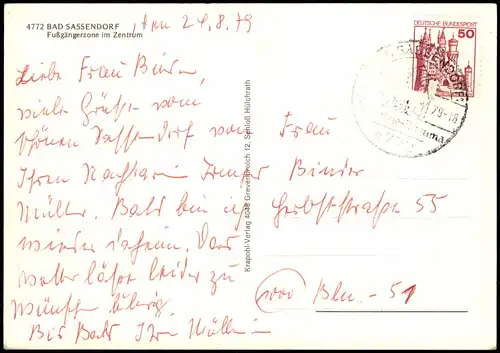 4772 BAD SASSENDORF
Fußgängerzone im Zentrum
, den 24.8.79
Liebe Frau Binder,
viele Grüße vom
schönen Sassendorf von
Ihren Nachbarin Irmgard
Müller. Bald bin ich
wieder daheim. Das
Wetter läßt leider zu
wünschen übrig.
Bis Bald Ihre Müller
Krapohl-Verlag 4048 Grevenbroich 12, Schloß Hülchrath
DEUTSCHE BUNDESPOST
50
SASSENDORF
79-18
Frau
Binder
Herbststraße 55
1000 Bln.-51